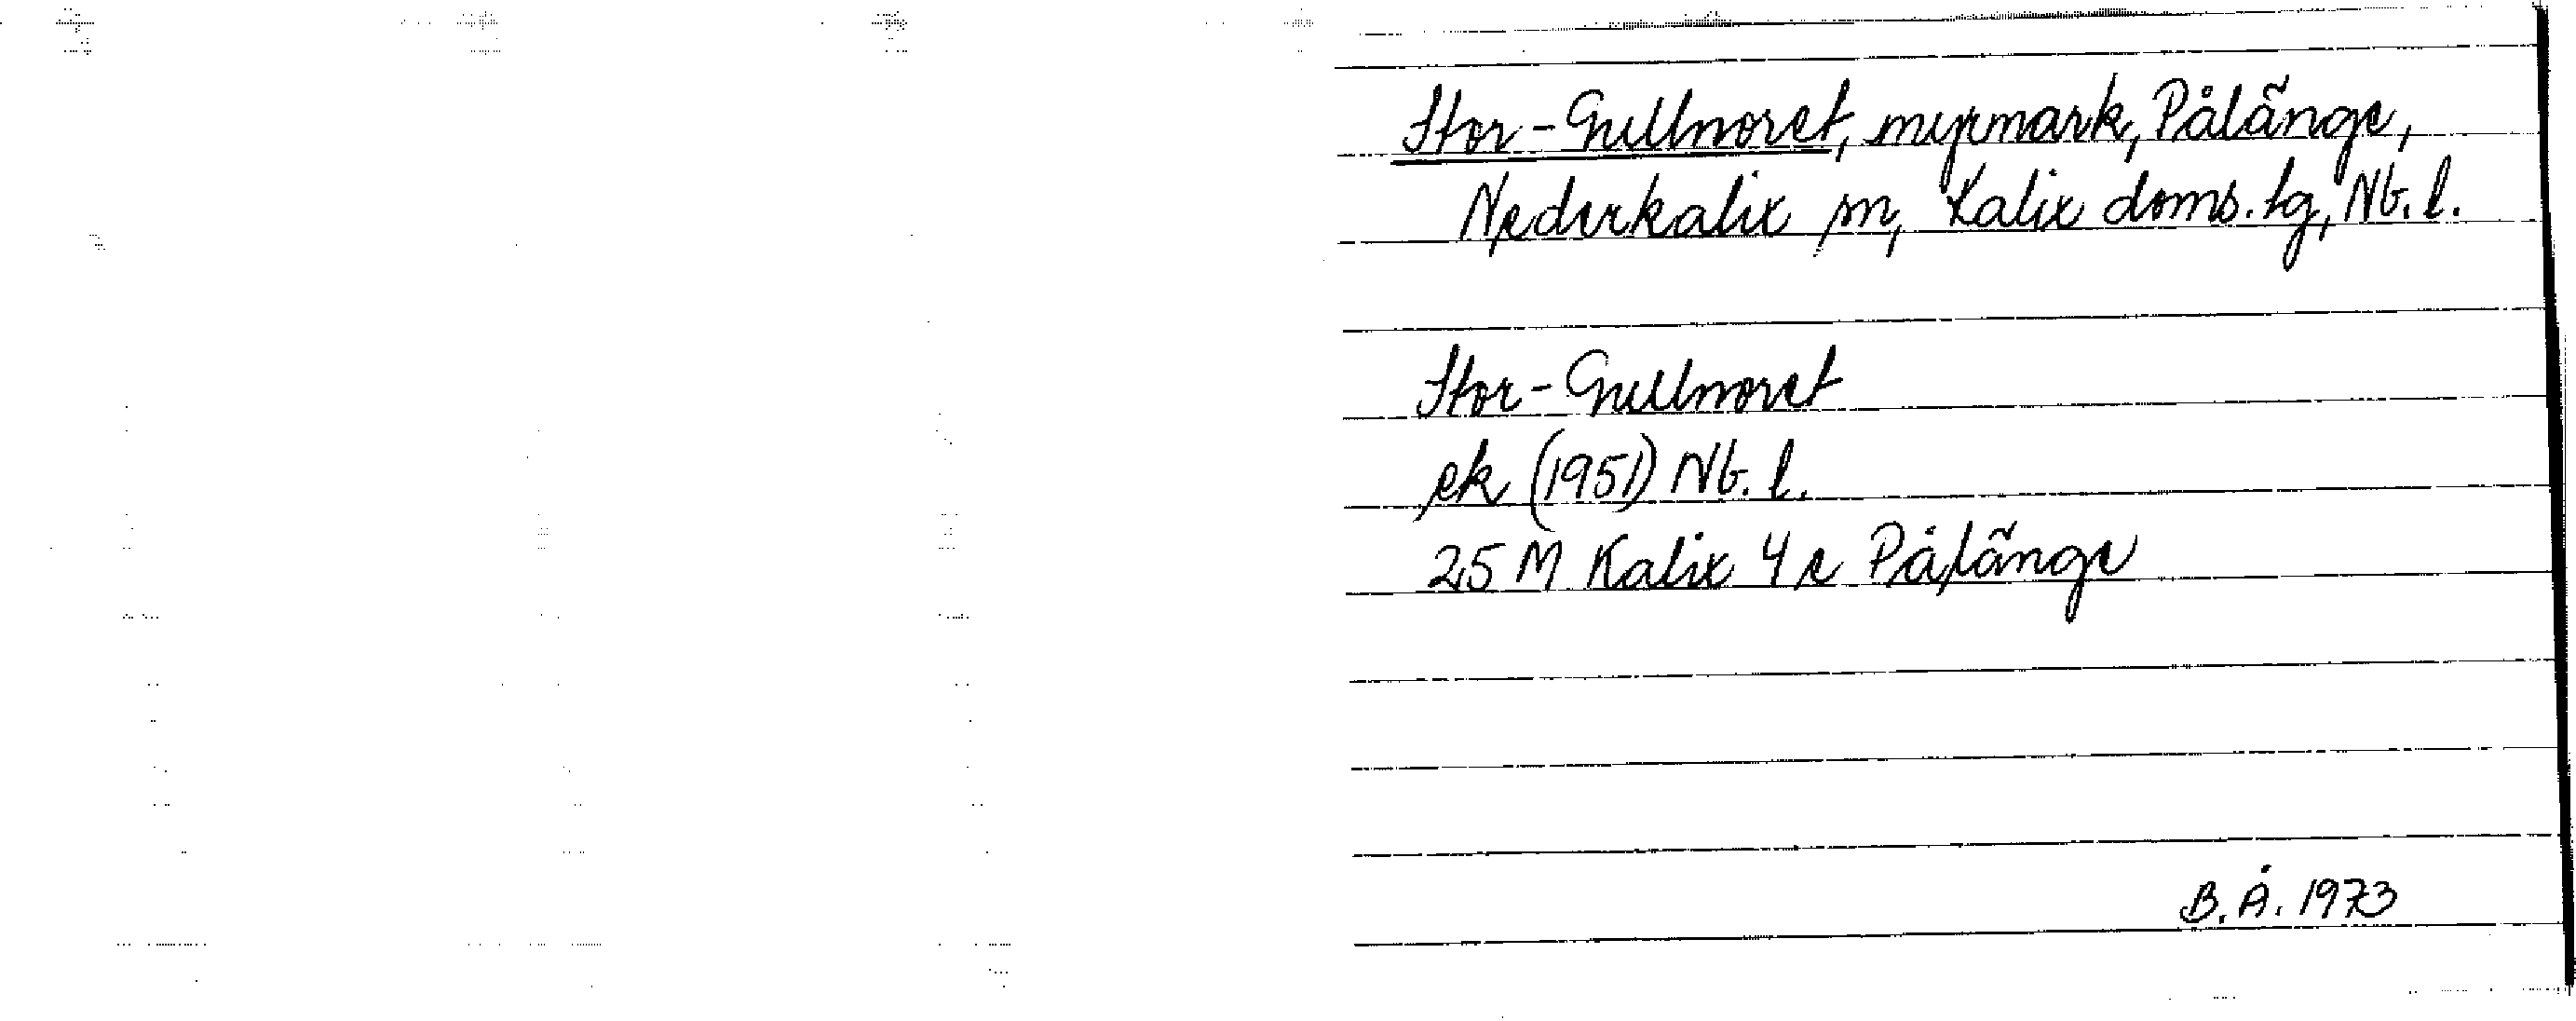 Stor-Gullmoret, myrmark, Pålänge,
Nederkalix sn, Kalix doms. tg, Nb. l.
Stor-Gullmoret
ek (1951) Nb. l.
25 M Kalix 4 c Pålänge
B. Å. 1973